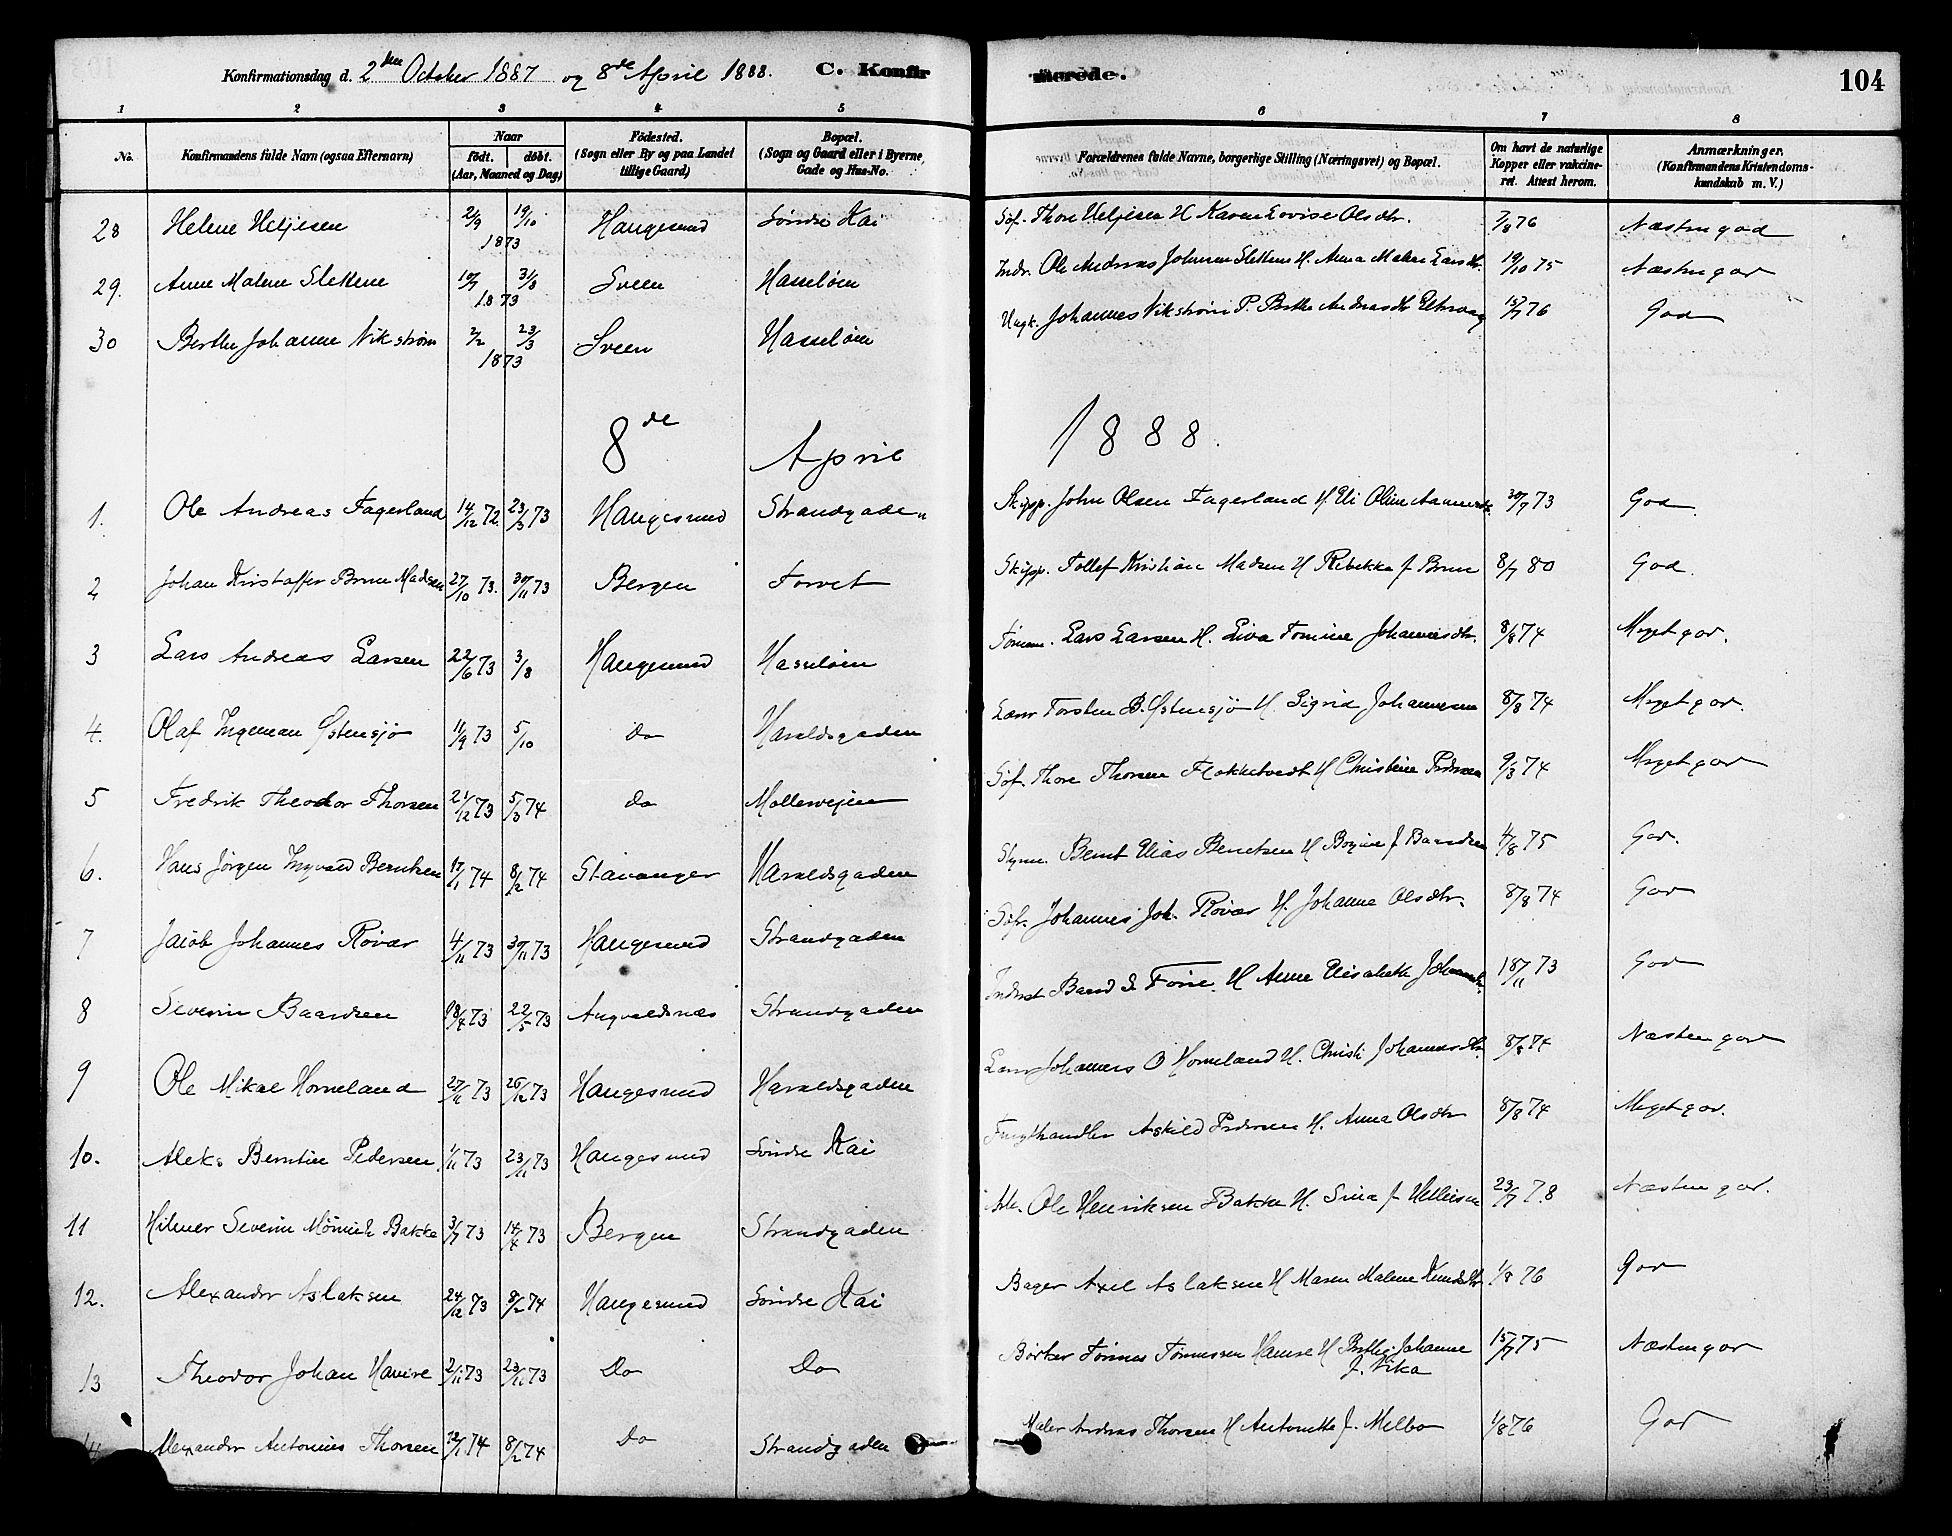 Konfirmationsdag d. 2den October 1887 og 8de April 1888. C. Konfirmerede. 104
1 2 3 4 5 6 7 8
No. Konfirmandens fulde Navn (ogsaa Efternavn) Naar født. døbt. (Aar, Maaned og Dag) Födested. (Sogn eller By og paa Landet tillige Gaard) Bopæl. (Sogn og Gaard eller i Byerne, Gade og Hus-No. Forældrenes fulde Navne, borgerlige Stilling (Næringsvei) og Bopæl. Om havt de naturlige Kopper eller vakcineret. Attest herom. Anmærkninger, (Konfirmandens Kristendomskundskab m. V.)
28 Helene Heljesen 2/9 19/10 1873 Haugesund Söndre Kai Söf. Thore Heljesen H Karen Lovise Olsdtr. 7/8 76 Næsten god
29. Anne Malene Slettene 10/7 31/8 1873 Sveen Hasseløen Indr. Ole Andreas Johnsen Slettene H. Anna Malene Larsdtr. 19/10 75 Næsten god
30 Berthe Johanne Vikstrøm 2/2 23/3 1873 Sveen Hasseløen Ungk. Johannes Vikstrøm P. Berthe Andreasdtr 15/7 76 God
8de April 1888.
1. Ole Andreas Fagerland 14/12 72 23/3 73 Haugesund Strandgaden Skipp. John Olsen Fagerland H Eli Oline 30/7 73 God
2 Johan Kristoffer Brun Madsen 27/10 73. 30/11 73 Bergen Torvet Skipp. Tollef Kristian Madsen H Rebekka f Brun 8/7 80 God.
3 Lars Andreas Larsen 22/6 73 3/8 Haugesund Hasseløen Tømm. Lars Larsen H. Liva Tomine Johannesdtr. 8/8 74 Meget god.
4. Olaf Ingeman Østensjø 11/9 73 5/10 do Haraldsgaden Torsten B. Østensjø H. Sigrid Johannesen 8/8 74 Meget god.
5 Fredrik Theodor Thorsen 21/12 73 5/3 74 do Møllervejen Söf. Thore Thorsen Flokketvedt H Christine Pedersen 9/3 74 Meget god
6. Hans Jörgen Ingvald Berntsen 17/1 74 8/2 74 Stavanger Haraldsgaden Styrm. Bernt Elias Berntsen H Borgine f Baardsen 4/8 75 God.
7 Jacob Johannes Røvær 4/11 73 30/11 73 Haugesund Strandgaden Söf. Johannes Joh. Røvær H. Johanne Olsdtr. 8/8 74 God
8 Severin Baardsen 18/4 73 22/5 73 Augvaldsnæs Strandgaden Inderst Baard S. H Anne Elisabeth 18/11 73 God
9 Ole Mikal Horneland 27/11 73 26/12 73 Haugesund Haraldsgaden Johannes O Horneland H. Christi Johannesdtr. 8/8 74 Næsten god
10. Aleks Berntin Pedersen 1/11 73 23/11 73 Haugesund Söndre Kai Askild Pedersen H. Anna Olsdtr 8/8 74 Meget god.
11 Hilmer Severin Mönnich Bakke 3/7 73 14/4 73 Bergen Strandgaden Arb. Ole Henriksen Bakke H. Sina f Hellesen 23/7 78 Næsten god.
12. Alexander Aslaksen 24/12 73 8/2 74 Haugesund Söndre Kai Bager Axel Aslaksen H Maren Malene Knudsdtr 1/8 76 God
13 Theodor Johan Havire 2/11 73 23/11 73 Do Do Bødker Tönnes Tönnessen H Berthe Johanne f. Vika 15/7 75 Næsten god
14 Alexander Antonius Thorsen 12/1 74 8/2 74 Do Strandgaden Maler Andreas Thorsen H Antonette f. Melbo 1/8 76 God